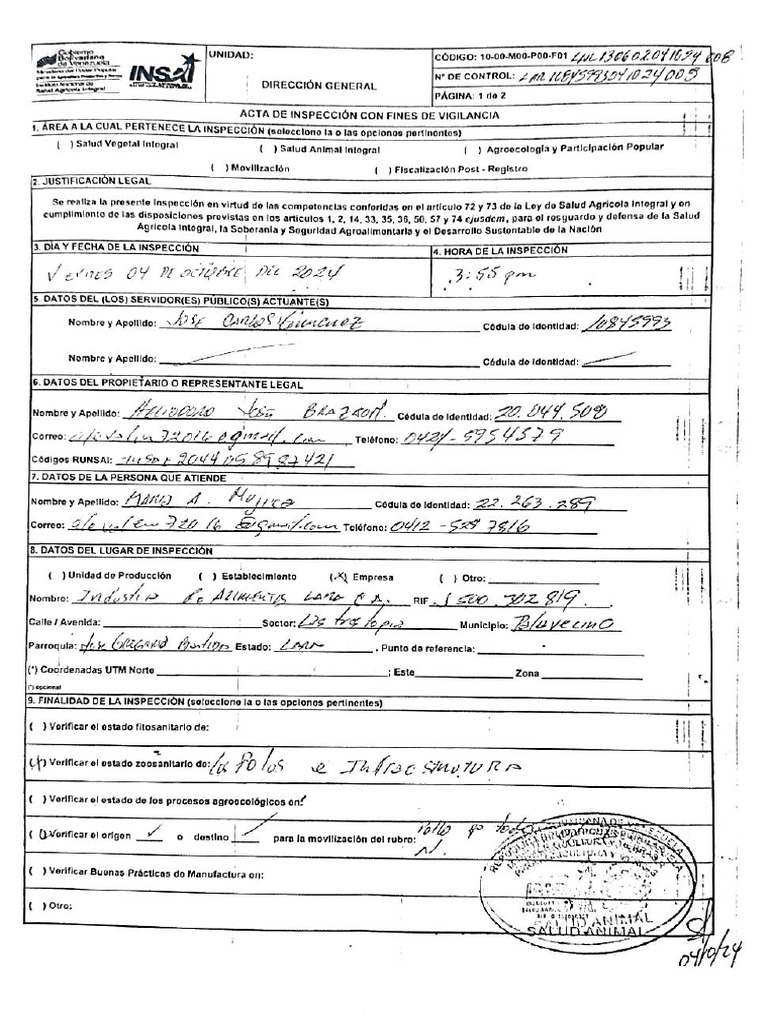 Gobierno
Bolivariano
de Venezuela
Instituto Nacional de
Salud Agrícola Integral
INSAI
UNIDAD:
DIRECCIÓN GENERAL
CÓDIGO: 10-00-M00-P00-F01
N° DE CONTROL:
PÁGINA: 1 de 2
ACTA DE INSPECCIÓN CON FINES DE VIGILANCIA
1. ÁREA A LA CUAL PERTENECE LA INSPECCIÓN (seleccione la o las opciones pertinentes)
( ) Salud Vegetal Integral ( ) Salud Animal Integral ( ) Agroecología y Participación Popular
( ) Movilización ( ) Fiscalización Post - Registro
2. JUSTIFICACIÓN LEGAL
Se realiza la presente inspección en virtud de las competencias conferidas en el artículo 72 y 73 de la Ley de Salud Agrícola Integral y en
cumplimiento de las disposiciones previstas en los artículos 1, 2, 14, 33, 35, 36, 50, 57 y 74 ejusdem, para el resguardo y defensa de la Salud
Agrícola Integral, la Soberanía y Seguridad Agroalimentaria y el Desarrollo Sustentable de la Nación
3. DÍA Y FECHA DE LA INSPECCIÓN 4. HORA DE LA INSPECCIÓN
Viernes 04 DE OCTUBRE DEL 2024 3:55 pm
5. DATOS DEL (LOS) SERVIDOR(ES) PÚBLICO(S) ACTUANTE(S)
Nombre y Apellido: José Carlos Gimenez Cédula de Identidad: 10845993
Nombre y Apellido: Cédula de Identidad:
6. DATOS DEL PROPIETARIO O REPRESENTANTE LEGAL
Nombre y Apellido: Heliodoro José BRAZAON. Cédula de Identidad: 20.044.500
Correo: alevalen72016@gmail.com Teléfono: 0424-5954579
Códigos RUNSAI:
7. DATOS DE LA PERSONA QUE ATIENDE
Nombre y Apellido: MARIA A. Mujica Cédula de Identidad: 22.263.289
Correo: alevalen72016@gmail.com Teléfono: 0412-528 7816
8. DATOS DEL LUGAR DE INSPECCIÓN
( ) Unidad de Producción ( ) Establecimiento (X) Empresa ( ) Otro:
Nombre: Industria DE ALIMENTOS LARA C.A. RIF. J 500.302.819.
Calle / Avenida: Sector: Municipio: Palavecino
Parroquia: José GREGORIO Bastidas Estado: LARA. Punto de referencia:
(*) Coordenadas UTM Norte ; Este Zona
(*) opcional
9. FINALIDAD DE LA INSPECCIÓN (seleccione la o las opciones pertinentes)
( ) Verificar el estado fitosanitario de:
(X) Verificar el estado zoosanitario de: los Pollos e INFRAESTRUCTURA
( ) Verificar el estado de los procesos agroecológicos en:
( ) Verificar el origen ✓ o destino ✓ para la movilización del rubro: Pollo
( ) Verificar Buenas Prácticas de Manufactura en:
( ) Otro:
SALUD ANIMAL
04/10/24